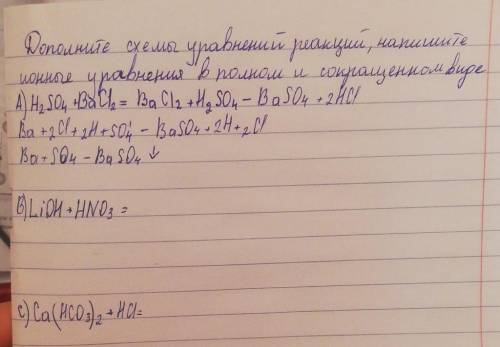 Дополните схемы уравнений реакций, напишите
ионные уравнения в полном и сокращенном виде
A) H₂SO₄ + BaCl₂ = BaCl₂ + H₂SO₄ - BaSO₄ + 2HCl
Ba + 2Cl + 2H + SO₄ - BaSO₄ + 2H + 2Cl
Ba + SO₄ - BaSO₄ ↓
B) LiOH + HNO₃ =
C) Ca(HCO₃)₂ + HCl =